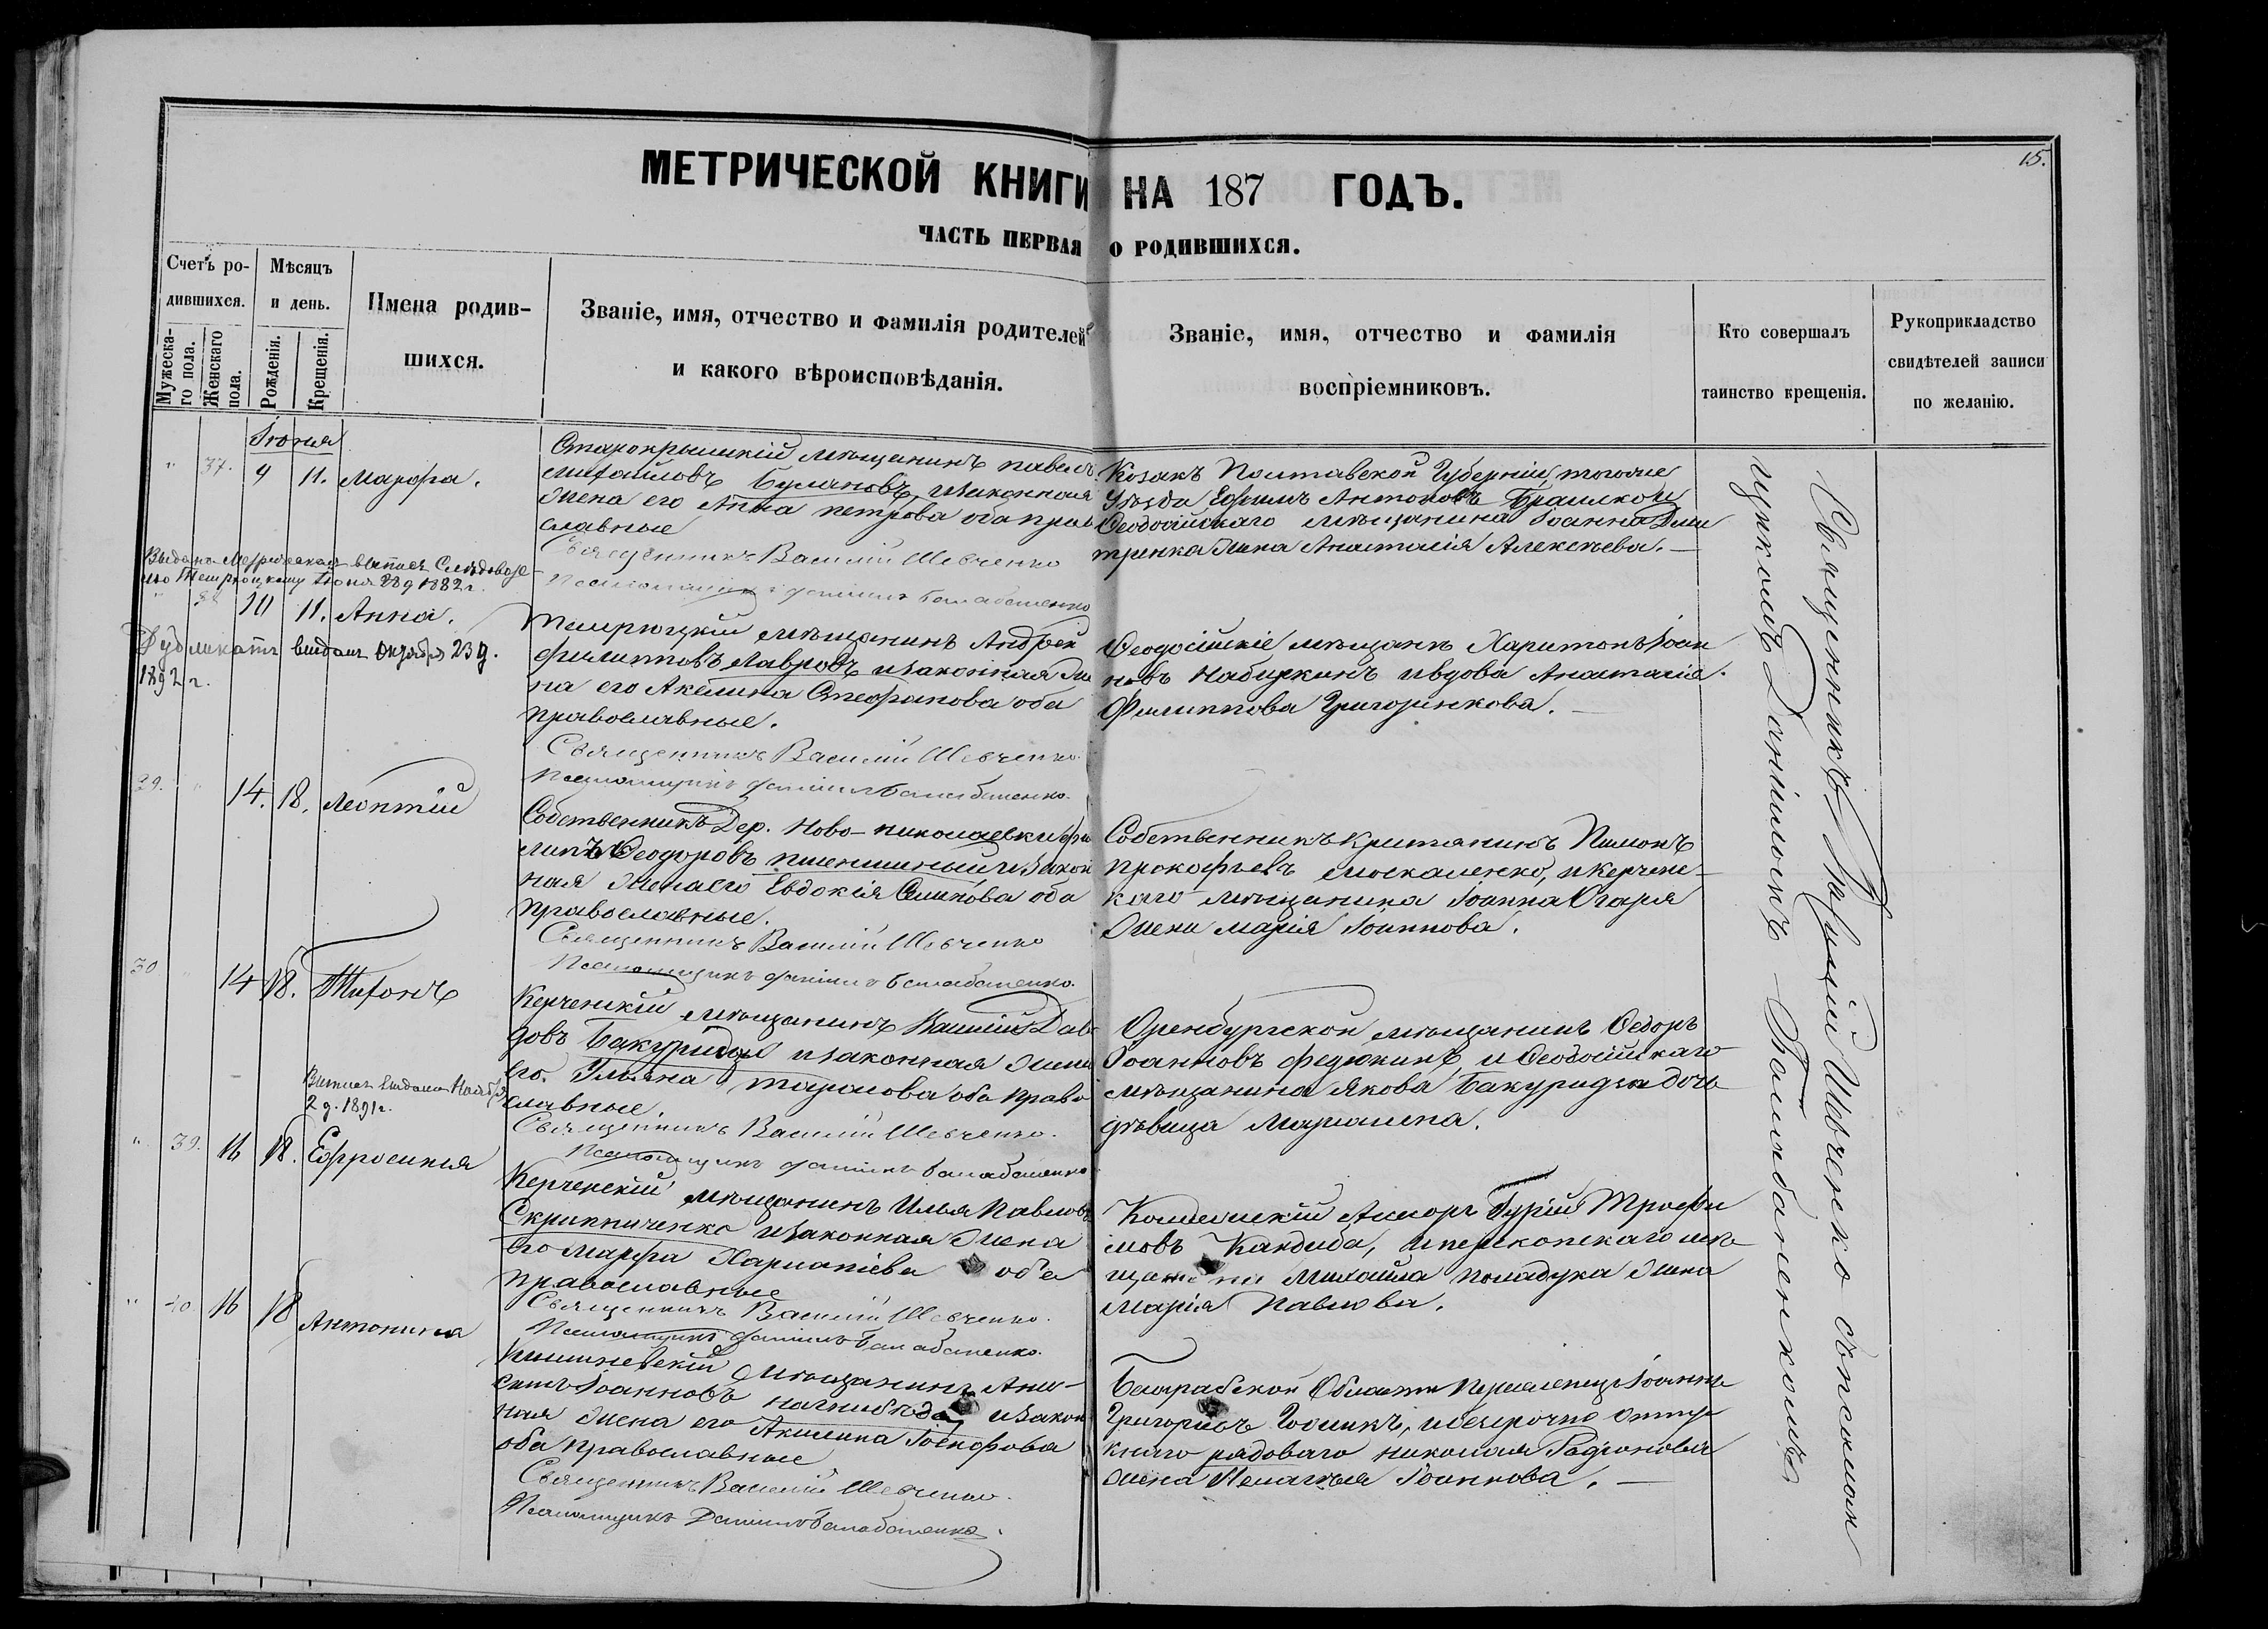 15.
МЕТРИЧЕСКОЙ КНИГИ НА 187 ГОДЪ.
ЧАСТЬ ПЕРВАЯ О РОДИВШИХСЯ.
Счетъ ро-
дившихся.
Мужеска-
го пола.
Женскаго
пола.
Мѣсяцъ
и день.
Рожденія.
Крещенія.
Имена родив-
шихся.
Званіе, имя, отчество и фамилія родителей
и какого вѣроисповѣданія.
Званіе, имя, отчество и фамилія
воспріемниковъ.
Кто совершалъ
таинство крещенія.
Рукоприкладство
свидѣтелей записи
по желанію.
Іюня
" 37. 9 11. Марфа.
Старокрымскій мѣщанинъ Павелъ
Михайловъ Булановъ, и законная
жена его Анна Петрова оба право
славные
Священникъ Василій Шевченко
Псаломщикъ Даніилъ Балабаненко
Козакъ Полтавской Губерніи, тогоже
Уѣзда Ефимъ Антоновъ
Ѳеодосійскаго мѣщанина Іоанна Дми
тренка жена Анастасія Алексѣева.—
Выдана Метрическая выпись
Іюня 28 д 1882 г.
" 10 11. Анна.
Дубликатъ выданъ Октября 23 д.
1892 г.
Темрюцкій мѣщанинъ Андрей
Филипповъ Лавровъ и законная же
на его Акелина Стефанова оба
православные.
Священникъ Василій Шевченко.
Псаломщикъ Даніилъ Балабаненко.
Ѳеодосійскіе мѣщане Харитонъ Іоан
новъ Набиркинъ и вдова Анастасія
Филиппова Григоренкова.—
29. " 14. 18. Леонтій
Собственникъ Дер. Ново-Николаевки Фи
липъ Ѳеодоровъ Пшеничный и закон
ная жена его Евдокія оба
православные.
Священникъ Василій Шевченко
Псаломщикъ Даніилъ Балабаненко.
Собственникъ Пименъ
Прокофьевъ Москаленко, и Керченс-
каго мѣщанина Іоанна
жена Марія Іоаннова.
30 " 14 18. Тихонъ
Керченскій мѣщанинъ Василій Дави
довъ Бакуридзе и законная жена
его Ульяна Тарасова оба право
славные.
Священникъ Василій Шевченко.
Псаломщикъ Даніилъ Балабаненко
Оренбургской мѣщанинъ Ѳедоръ
Іоанновъ Федюкинъ, и Ѳеодосійскаго
мѣщанина Якова Бакуридзи дочь
дѣвица Маріамна.
Выпись выдана Ноября
2 д. 1891 г.
" 39. 16 18. Ефросинія
Керченскій мѣщанинъ Илья Павловъ
Скрипниченко и законная жена
его Марфа оба
православные
Священникъ Василій Шевченко.
Псаломщикъ Даніилъ Балабаненко.
Гурій Трофи
мовъ Кандиба, и Перекопскаго мѣ-
щанина Михаила Поладука жена
Марія Павлова.
" 40 16 18 Антонина
Кишиневскій мѣщанинъ Ани-
симъ Іоанновъ и закон
ная жена его Акилина Іосифова
оба православные
Священникъ Василій Шевченко.
Псаломщикъ Даніилъ Балабаненко.
Бессарабской Области Іоаннъ
Григорьевъ и безсрочно отпу-
кнаго рядоваго Николая Радіонова
жена Пелагея Іоаннова.—
Священникъ Василій Шевченко съ псалом
щикомъ Даніиломъ Балабаненкомъ